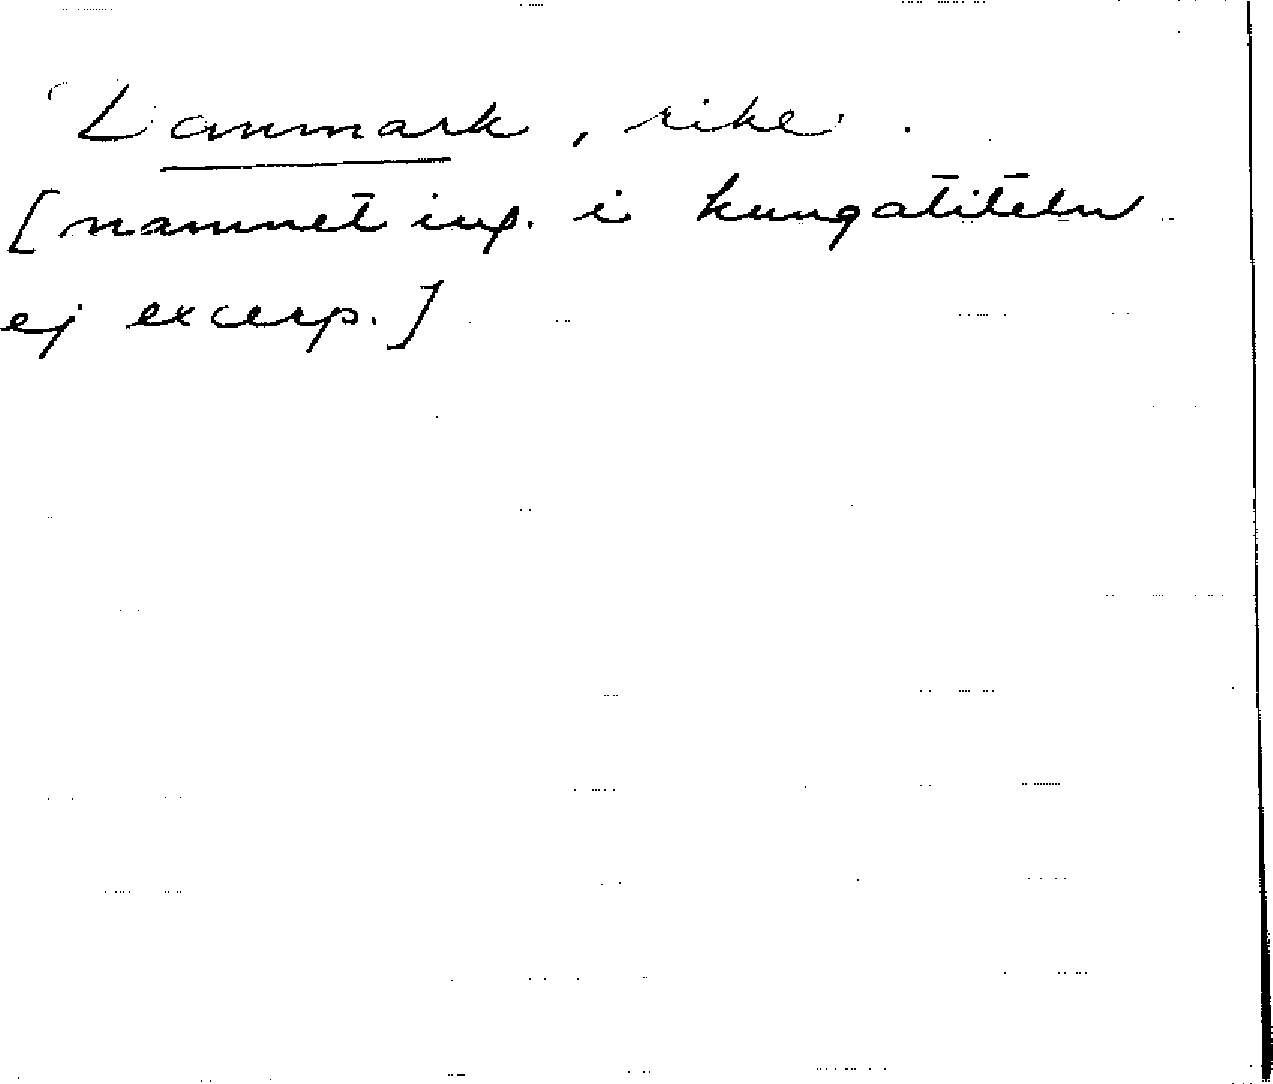 Danmark, rike.
[namnet ing. i kungatiteln
ej excerp.]